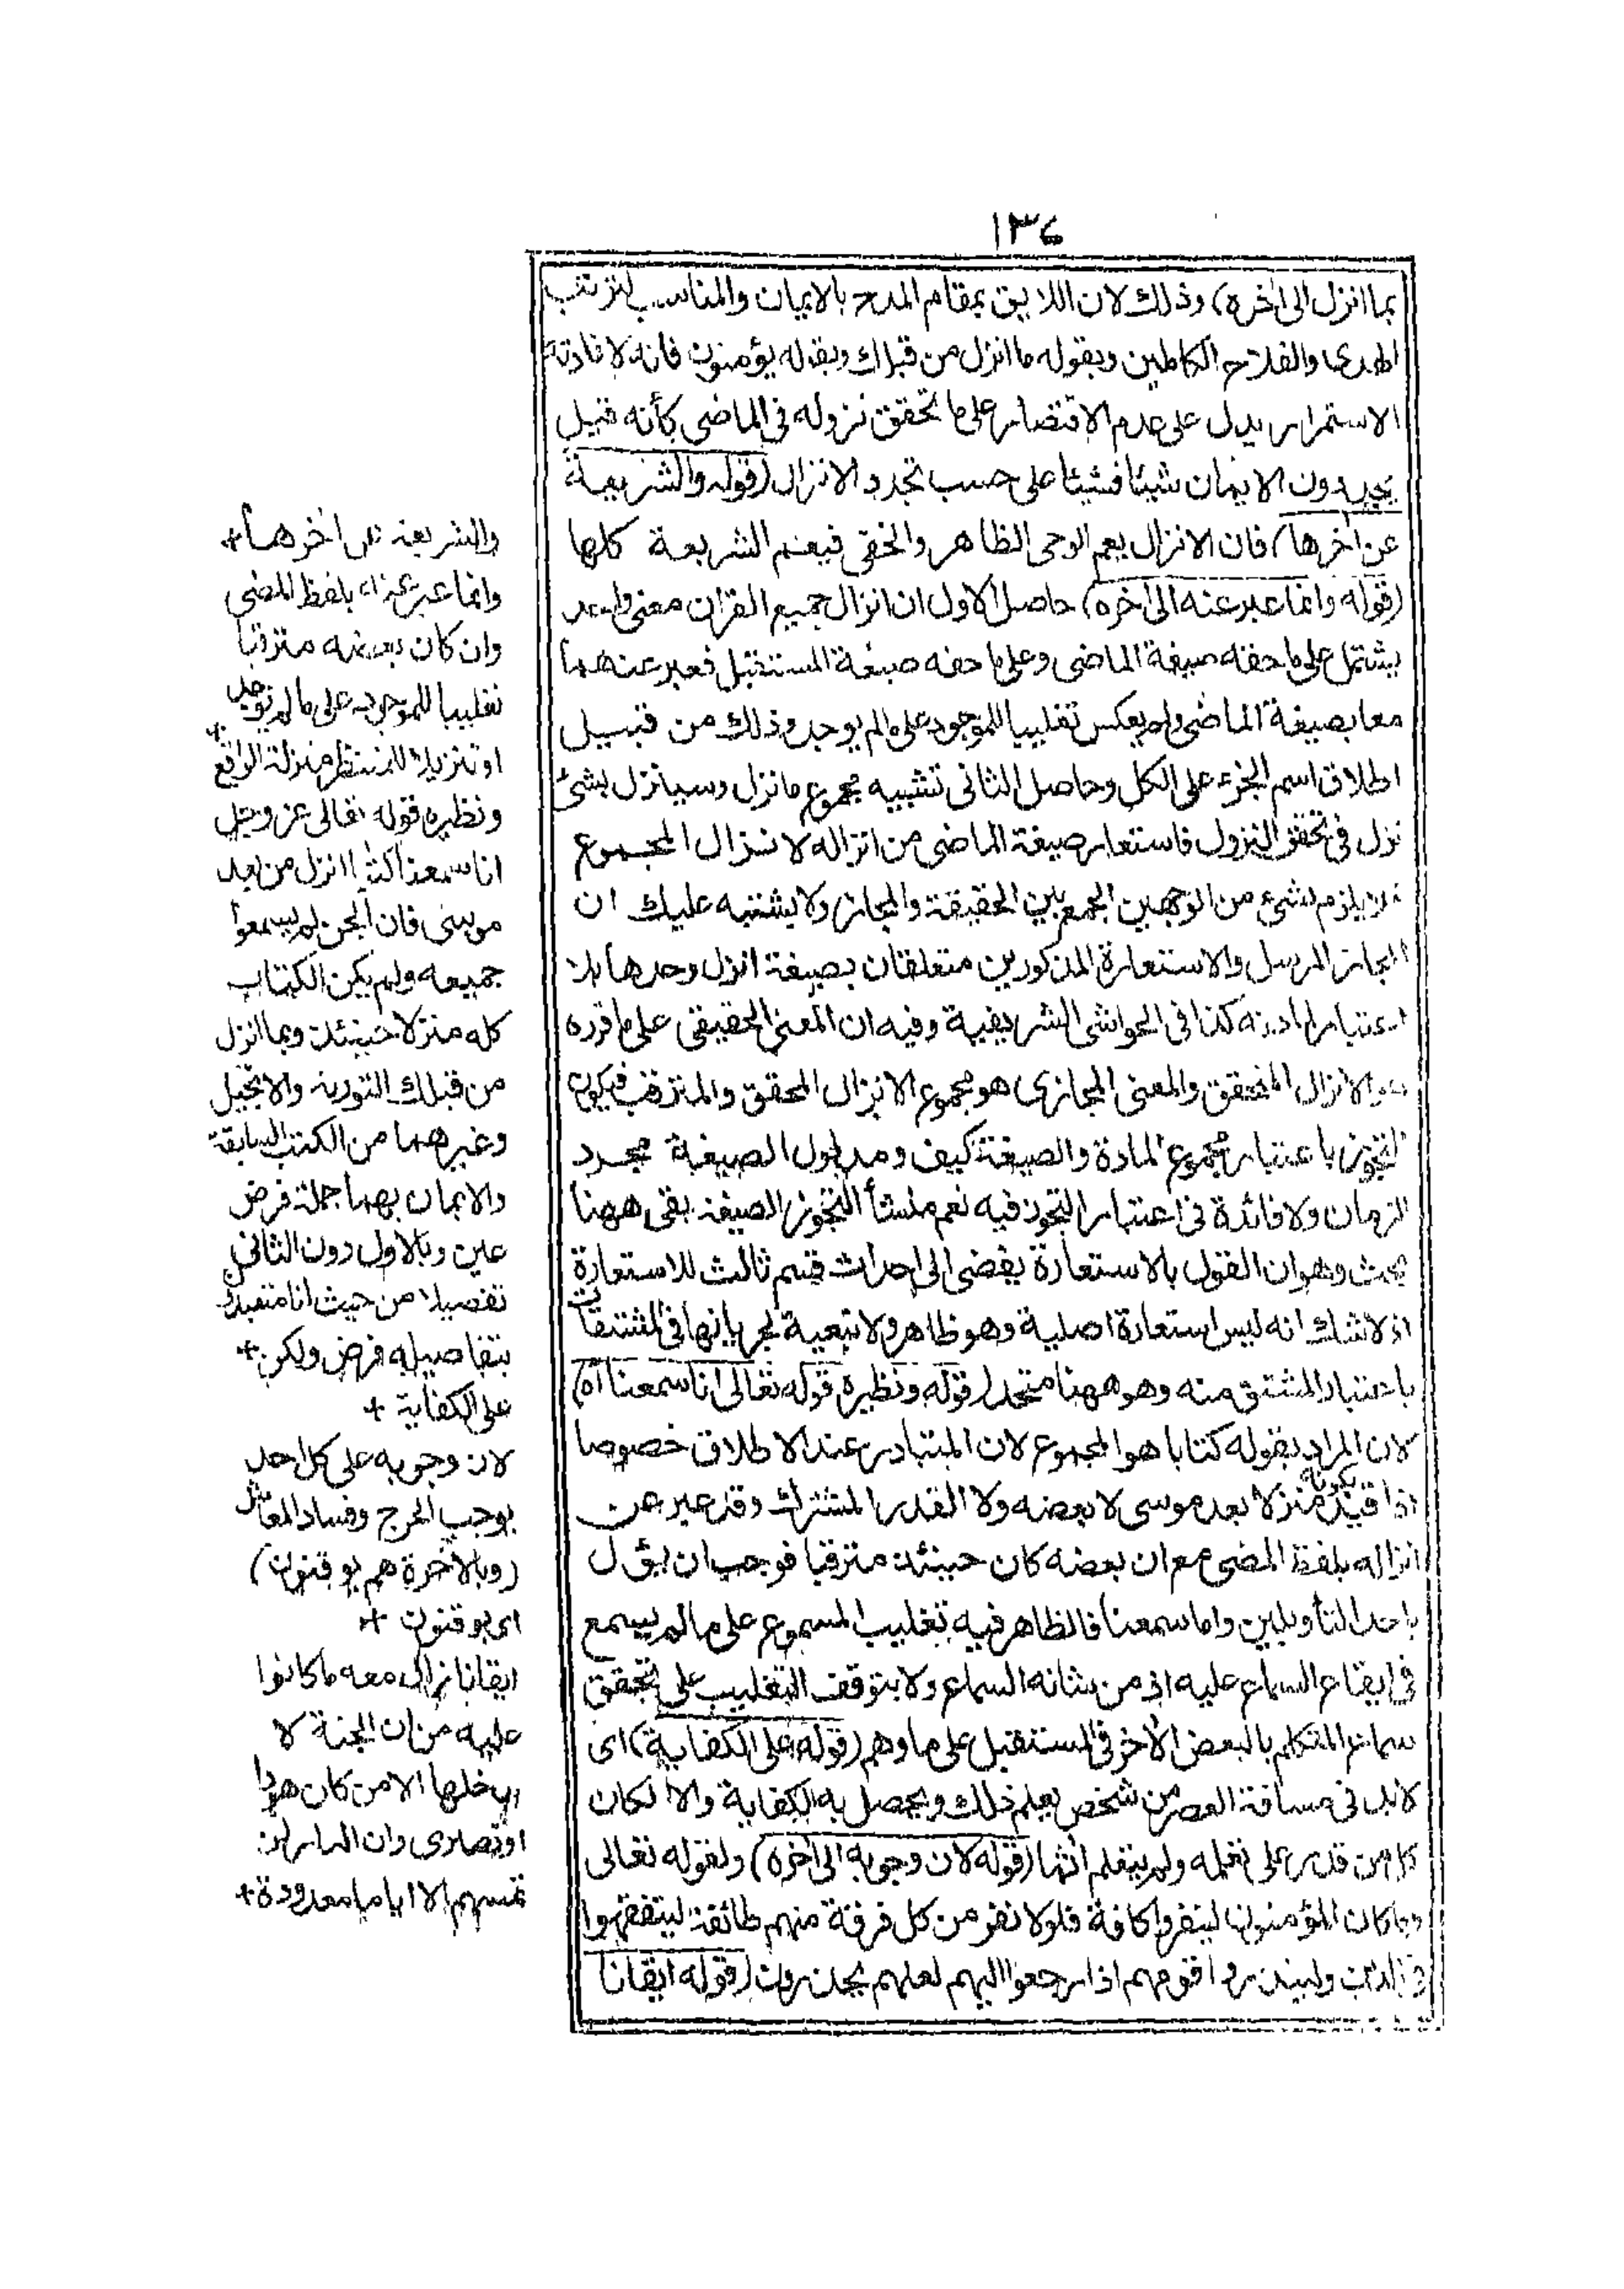 ١٣٤
بما انزل الى اخره) وذلك لان اللايق بمقام المدح بالايمان والمناسب لترتب
الهدى والفلاح الكاملين وبقوله ما انزل من قبلك وبقوله يؤمنون فانه لافادته
الاستمرار يدل على عدم الاقتضار على ما تحقق نزوله فى الماضى كأنه قيل
يجددون الايمان شيئا فشيئا على حسب تجدد الانزال (قوله والشريعة
عن اخرها) فان الانزال يعم الوحى الظاهر والخفى فيعم الشريعة كلها
(قوله وانما عبر عنه الى اخره) حاصل الاول ان انزال جميع القران معنى واحد
يشتمل على ما حقه صيغة الماضى وعلى ما حقه صيغة المستقبل فعبر عنهما
معا بصيغة الماضى ولم يعكس تغليبا للموجود على ما لم يوجد وذلك من قبيل
اطلاق اسم الجزء على الكل وحاصل الثانى تشبيه مجموع ما نزل وسيانزل بشئ
نزل فى تحقق النزول فاستعار صيغة الماضى من انزاله لانزال المجموع
فلا يلزم بشئ من الوجهين الجمع بين الحقيقة والمجاز ولا يشتبه عليك ان
المجاز المرسل والاستعارة المذكورين متعلقان بصيغة انزل وحدها بلا
اعتبار لمادته كذا فى الحواشى الشريفية وفيه ان المعنى الحقيقى على ما قرره
هو الانزال المتحقق والمعنى المجازى هو مجموع الانزال المحقق والمترقب فيكون
التجوز باعتبار مجموع المادة والصيغة كيف ومدلول الصيغة مجرد
الزمان ولا فائدة فى اعتبار التجوز فيه نعم منشأ التجوز الصيغة بقى ههنا
بحث وهو ان القول بالاستعارة يفضى الى احداث قسم ثالث للاستعارة
اذ لا شك انه ليس استعارة اصلية وهو ظاهر ولا تبعية لجريانها فى المشتقات
باعتبار المشتق منه وهو ههنا متحد (قوله ونظيره قوله تعالى انا سمعنا اه)
لان المراد بقوله كتابا هو المجموع لان المتبادر عند الاطلاق خصوصا
اذا قيد بكونه منزلا بعد موسى لا بعضه ولا القدر المشترك وقد عبر عن
انزاله بلفظ المضى مع ان بعضه كان حينئذ مترقبا فوجب ان يؤل
باحد التأويلين واما سمعنا فالظاهر فيه تغليب المسموع على ما لم يسمع
فى ايقاع السماع عليه اذ من شانه السماع ولا يتوقف التغليب على تحقق
سماع المتكلم بالبعض الأخر فى المستقبل على ما وهم (قوله على الكفاية) اى
لابد فى مسافة العصر من شخص يعلم ذلك ويحصل به الكفاية والا لكان
كل من قدر على تعلمه ولم يتعلم اثما (قوله لان وجوبه الى اخره) ولقوله تعالى
وما كان المؤمنون لينفروا كافة فلولا نفر من كل فرقة منهم طائفة ليتفقهوا
فى الدين ولينذروا قومهم اذا رجعوا اليهم لعلهم يحذرون (قوله ايقانا
والشريعة عن اخرهما+
وانما عبر عنه بلفظ المضى
وان كان بعضه مترقبا
تغليبا للموجود على ما لم يوجد+
او تنزيلا للمنتظر منزلة الواقع
ونظيره قوله تعالى عز وجل
انا سمعنا كتابا انزل من بعد
موسى فان الجن لم يسمعوا
جميعه ولم يكن الكتاب
كله منزلا حينئذ وبما انزل
من قبلك التورية والانجيل
وغيرهما من الكتب السابقة
والايمان بهما جملة فرض
عين وبالاول دون الثانى
تفصيلا من حيث انا متعبدون
بتفاصيله فرض ولكن+
على الكفاية +
لان وجوبه على كل احد
يوجب الحرج وفساد المعاش
(وبالاخرة هم يوقنون)
اى يوقنون +
ايقانا زال معه ما كانوا
عليه من ان الجنة لا
يدخلها الا من كان هودا
او نصارى وان النار لن
تمسهم الا اياما معدودة+